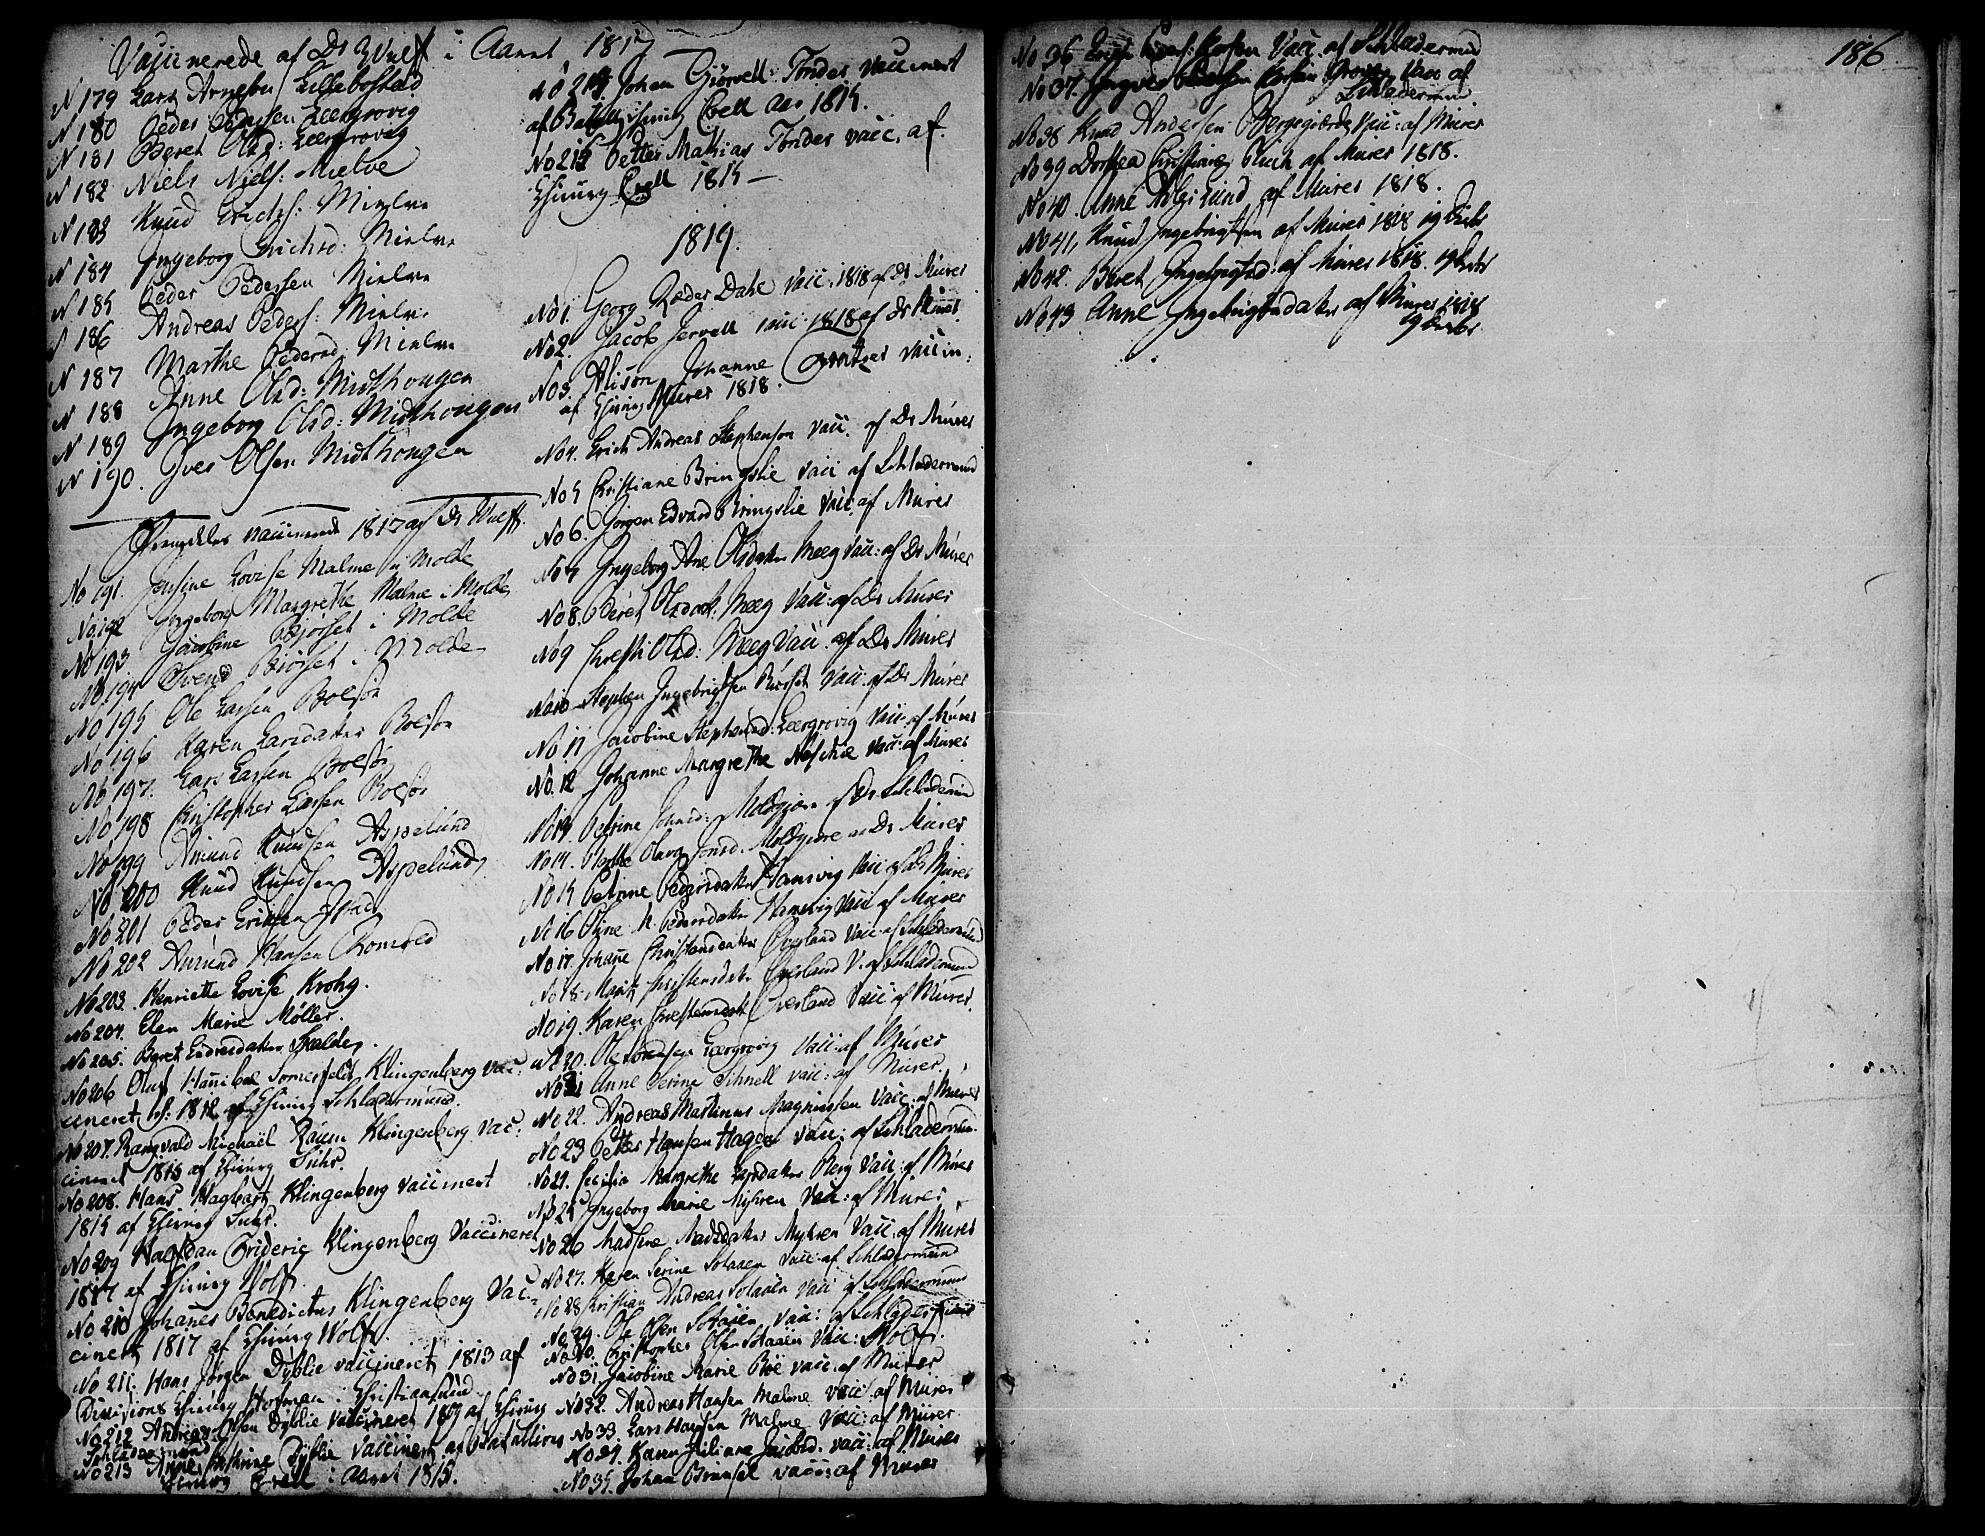 Vaccinerede af Dr Wulff i Aaret 1817
N 179 Lars Arnesen Lillebostad
N 180 Peder Pedersen Leergrovig
N 181 Beret Olsd: Leergrovig
N 182 Niels Niels: Mielve
N 183 Knud Erichs: Mielve
N 184 Ingeborg Erichsd: Mielve
N 185 Peder Pedersen Mielve
N 186 Andreas Peders: Mielve
N 187 Marthe Pedersd: Mielve
N 188 Anne Olsd: Midthougen
N 189 Ingeborg Olsd: Midthougen
N 190. Iver Olsen Midthougen
vaccinerede 1817 af Dr Wulff.
No 191. Jensine Lovise Malme i Molde
No 192 Ingeborg Margrethe Malme i Molde
No 193 Jacobine Biørset i Molde
No 194 Svend Biørset i Molde
No 195 Ole Larsen Bolsøe
No 196 Karen Larsdatter Bolsøe
No 197. Lars Larsen Bolsøe
No 198 Christopher Larsen Bolsøe
No 199 Amund Knudsen Aspelund
No 200 Knud Knudsen Aspelund
No 201 Peder Eriksen
No 202 Amund Hansen Romsed
No 203. Henriette Lovise Krohg.
No 204. Elen Marie Møller.
No 205. Beret Endresdatter Skalde.
No 206 Oluf Hannibal Somerfeldt Klingenberg vac:
cineret 1812 af Chirurg Schladermund.
No 207. Rangvald Michael Raum Klingenberg vac:
cineret 1813 af Chirurg Suhr.
No 208. Hans Hagbart Klingenberg vaccineret
1815 af Chirurg Suhr.
No 209 Halfdan Friderig Klingenberg Vaccineret
1817 af Chirurg Wolff.
No 210 Johanes Benedictus Klingenberg Vac:
cineret 1817 af Chirurg Wolff.
No 211. Hans Jørgen Dyblie vaccineret 1813 af
Divisions Chirurg Hofman i Christiansund.
No 212 Andreas Olsen Dyblie Vaccineret af Chirurg
Schladermund
No 213 Anne Dyblie vaccineret af Batallions
Chirurg Evell i Aaret 1815.
No 214 Johan Giørvell Tondes Vaccineret
af Bataill: Chirurg Evell Aar 1815.
No 215 Petter Mathias Tondes vacc. af
Chirurg Evell 1815 —
1819.
No 1. Georg Ræder Dahl Vacc. 1818 af Dr Mürer
No 2. Jacob Jervell vacc 1818 af Dr Mürer
No 3. Alison Johanne vaccin:
af Chirurg Mürer 1818.
No 4. Erich Andreas Stephenson vacc. af Dr Mürer
No 5 Christiane Bringslie vacc af Schladermund
No 6. Jørgen Edvard Bringslie Vacc af Mürer
No 7 Ingeborg Ane Olsdatter Meeg Vacc: af Dr Mürer
No 8. Beret Olsdatt. Meeg Vacc: af Dr Mürer
No 9 Olsd: Meeg Vacc: af Dr Mürer
No 10 Stephen Ingebrigtsen Vacc: af Dr Mürer
No 11 Jacobine Stephensd: Leergrovig Vacc. af Mürer
No. 12 Johanne Margrethe vacc: af Mürer
No 13. Petrine Moldgiære af Dr Schladermund
No 14. Jonsd. Moldgiære af Dr Mürer
No 15 Petrine Pedersdatter Hamsvig Vacc af Dr Mürer
No 16 Oline M. Pedersdatter Hamsvig Vacc af Mürer
No 17. Johanne Christensdatter Øverland Vacc af Schladermund
No 18. Marit Christensdatr Øverland V. af Schladermund
No 19. Karen Christensdatt Øverland Vacc af Mürer.
No 20. Ole Leergrovig Vacc: af Mürer
No 21 Anne Serine Schnell vacc: af Mürer.
No 22. Andreas Martinus Magnussen Vacc: af Mürer
No 23 Petter Hansen Hagen vacc: af Schladermun.
No 24. Cecilia Margrethe Larsdatter Berg Vacc: af Mürer
No 25 Ingeborg Marie Myhren Vacc: af Mürer
No 26 Madsine Madsdatter Myhren Vacc: af Mürer
No 27. Karen Serine Solaaen Vacc: af Schladermund
No 28 Christian Andreas Solaaen Vacc af Schladermund
No 29. Ole Olsen Solaaen vacc: af Schladermund
No 30. Christopher Olsen Solaaen Vacc: Wolff.
No 31. Jacobine Marie Boe vacc: af Mürer
No 32. Andreas Hansen Malme vacc: af Mürer
No 33. Lars Hansen Malme Vacc: af Mürer
No 34. Karen Juliane Jacobsd. vacc: af Mürer
No 35. Johan vacc: af Mürer
186
No 36 Vacc. af Schladermund
No 37. Vacc af
Schladermun
No 38 Knud Andersen Vacc: af Mürer
No 39 Dorthea af Mürer 1818.
No 40. Anne Lund af Mürer 1818.
No 41. Knud Ingebrigtsen af Mürer 1818 19 Octbr
No 42. Beret Ingebrigtsd: af Mürer 1818. 19 Octbr
No 43 Anne Ingebrigtsdatter af Mürer 1818
19 Octbr